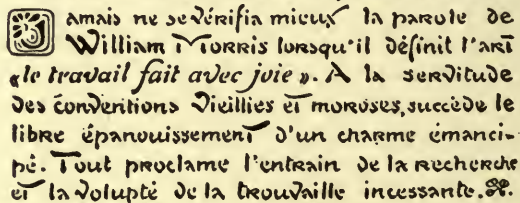 Jamais ne se vérifia mieux la parole de
William Morris lorsqu'il définit l'art
«le travail fait avec joie». A la servitude
des conventions vieillies et moroses, succède le
libre épanouissement d'un charme émanci-
pé. Tout proclame l'entrain de la recherche
et la volupté de la trouvaille incessante.